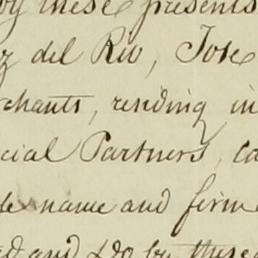 by these presents
z del Rio, Jose
chants, residing in
cial Partners, ca
le name and firm
and do by these